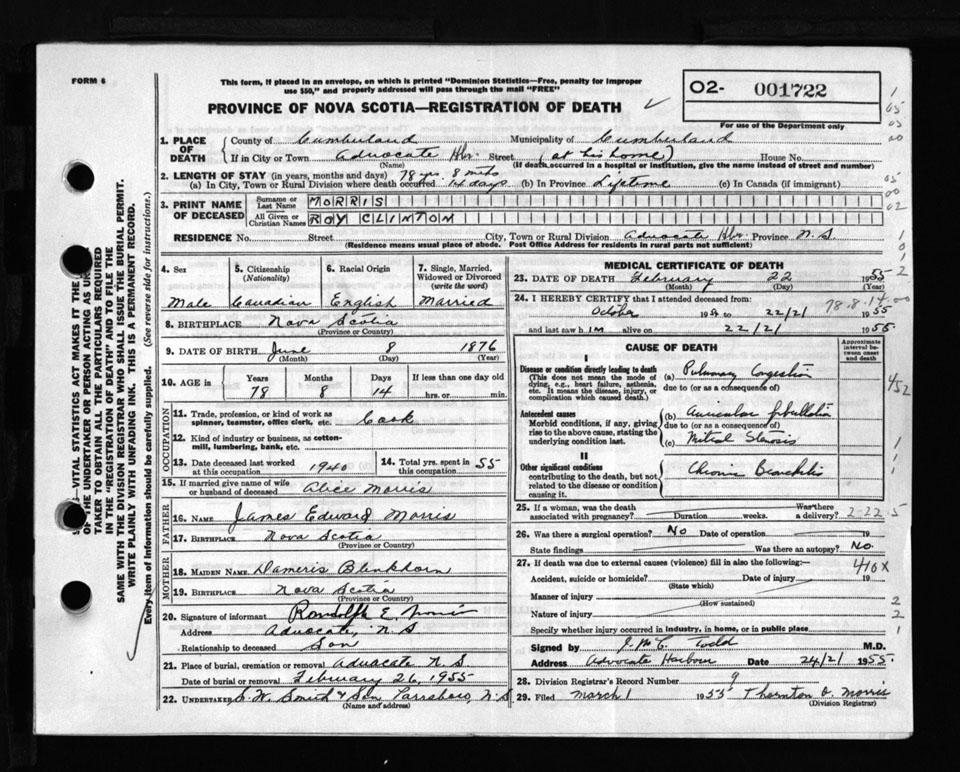 FORM 6
This form, if placed in an envelope, on which is printed "Dominion Statistics—Free, penalty for improper
use $50," and properly addressed will pass through the mail "FREE"
PROVINCE OF NOVA SCOTIA—REGISTRATION OF DEATH
O2- 001722
For use of the Department only
1. PLACE OF DEATH
County of Cumberland Municipality of Cumberland
If in City or Town Advocate Hbr. Street (at his home) House No.
(Name) (If death occurred in a hospital or institution, give the name instead of street and number)
2. LENGTH OF STAY (in years, months and days) 78 yrs. 8 mths
(a) In City, Town or Rural Division where death occurred 14 days (b) In Province Lifetime (c) In Canada (if immigrant)
3. PRINT NAME OF DECEASED
Surname or Last Name MORRIS
All Given or Christian Names ROY CLINTON
RESIDENCE No. Street City, Town or Rural Division Advocate Hbr. Province N.S.
(Residence means usual place of abode. Post Office Address for residents in rural parts not sufficient)
4. Sex
Male
5. Citizenship (Nationality)
Canadian
6. Racial Origin
English
7. Single, Married, Widowed or Divorced (write the word)
Married
8. BIRTHPLACE Nova Scotia
(Province or Country)
9. DATE OF BIRTH June 8 1876
(Month) (Day) (Year)
10. AGE in Years Months Days If less than one day old
78 8 14 hrs. or min.
OCCUPATION
11. Trade, profession, or kind of work as spinner, teamster, office clerk, etc. Cook
12. Kind of industry or business, as cotton-mill, lumbering, bank, etc.
13. Date deceased last worked at this occupation 1940
14. Total yrs. spent in this occupation 55
15. If married give name of wife or husband of deceased Alice Morris
FATHER
16. NAME James Edward Morris
17. BIRTHPLACE Nova Scotia
(Province or Country)
MOTHER
18. MAIDEN NAME Dameris Blenkhorn
19. BIRTHPLACE Nova Scotia
(Province or Country)
20. Signature of informant Randolph E. Morris
Address Advocate, N.S
Relationship to deceased Son
21. Place of burial, cremation or removal Advocate N.S.
Date of burial or removal February 26, 1955
22. UNDERTAKER Smith & Son Parrsboro, N.S
(Name and address)
MEDICAL CERTIFICATE OF DEATH
23. DATE OF DEATH February 22 1955
(Month) (Day) (Year)
24. I HEREBY CERTIFY that I attended deceased from:
October 1954 to 22/2/ 1955
and last saw him alive on 22/2/ 1955
78.8.14.00
CAUSE OF DEATH
Approximate interval between onset and death
I
Disease or condition directly leading to death
(This does not mean the mode of dying, e.g., heart failure, asthenia, etc. It means the disease, injury, or complication which caused death.)
(a) Pulmonary Congestion
due to (or as a consequence of)
Antecedent causes
Morbid conditions, if any, giving rise to the above cause, stating the underlying condition last.
(b) Auricular fibrillation
due to (or as a consequence of)
(c) Mitral Stenosis
II
Other significant conditions
contributing to the death, but not related to the disease or condition causing it.
Chronic Bronchitis
25. If a woman, was the death associated with pregnancy? Duration weeks. Was there a delivery?
2-22-5
26. Was there a surgical operation? No Date of operation 19
State findings Was there an autopsy? No.
27. If death was due to external causes (violence) fill in also the following:—
410X
Accident, suicide or homicide? Date of injury 19
(State which)
Manner of injury
(How sustained)
Nature of injury
Specify whether injury occurred in industry, in home, or in public place
Signed by Todd M.D.
Address Advocate Harbour Date 24/2/ 1955.
28. Division Registrar's Record Number 9
29. Filed March 1 1955 Thornton O. Morris
(Division Registrar)
VITAL STATISTICS ACT MAKES IT THE
OF THE UNDERTAKER OR PERSON ACTING AS UNDER-
TAKER TO OBTAIN ALL THE PARTICULARS REQUIRED
IN THE "REGISTRATION OF DEATH" AND TO FILE THE
SAME WITH THE DIVISION REGISTRAR WHO SHALL ISSUE THE BURIAL PERMIT.
WRITE PLAINLY WITH UNFADING INK. THIS IS A PERMANENT RECORD.
Every item of information should be carefully supplied. (See reverse side for instructions.)